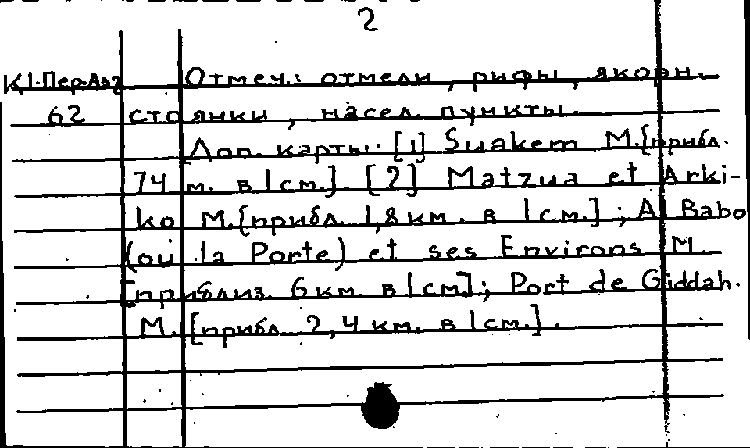 2
К1-Пер-Аз2 Отмеч.: отмели, рифы, якорн.
62 стоянки, насел. пункты.
Доп. карты: [1] Suakem М. [прибл.
74 м. в 1 см.] [2] Matzua et Arki-
ko М. [прибл. 1,8 км. в 1 см.]; Al Babo
(ou la Porte) et ses Environs М.
[приблиз. 6 км в 1 см]; Port de Giddah.
М. [прибл. 2,4 км. в 1 см.].